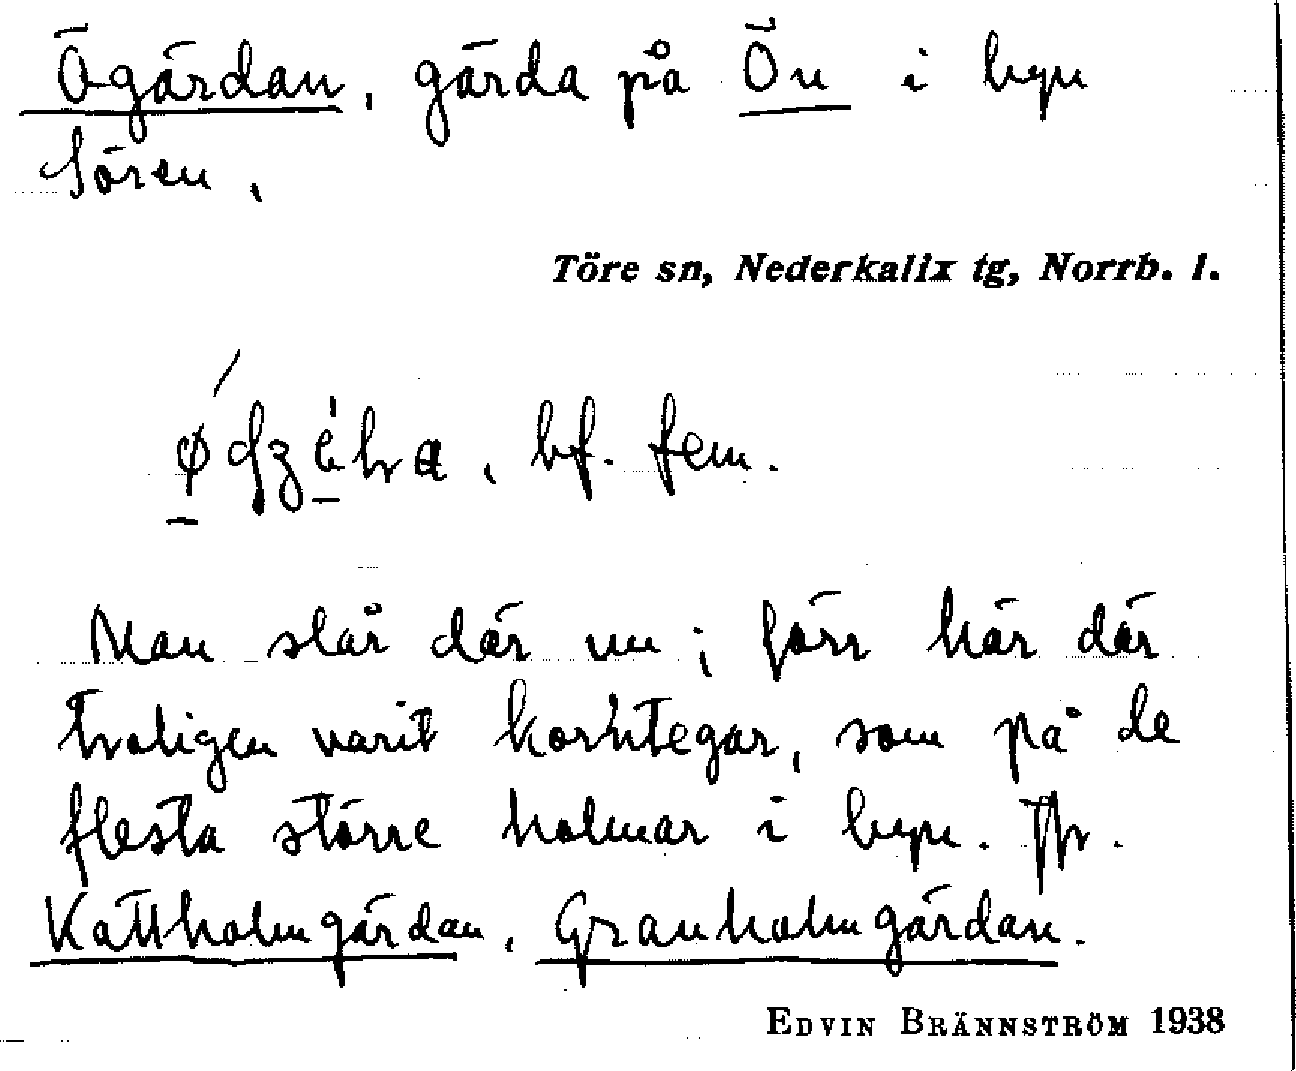 Ögärdan, gärda på Ön i byn
Sören.
Töre sn, Nederkalix tg, Norrb. l.
bf. fem.
Man slår där nu; förr här där
troligen varit korntegar, som på de
flesta större holmar i byn. Jfr.
Kattholmgärdan, Granholmgärdan.
EDVIN BRÄNNSTRÖM 1938